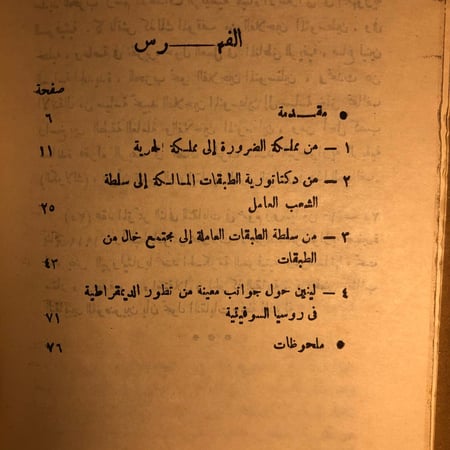 الفهـــرس
صفحة
• مقـدمة ٦
١ — من مملكة الضرورة إلى مملكة الحرية ١١
٢ — من دكتاتورية الطبقات المالكة إلى سلطة
الشعب العامل ٢٥
٣ — من سلطة الطبقات العاملة إلى مجتمع خال من
الطبقات ٤٣
٤ — لينين حول جوانب معينة من تطور الديمقراطية
فى روسيا السوفيتية ٧١
• ملحوظات ٧٦